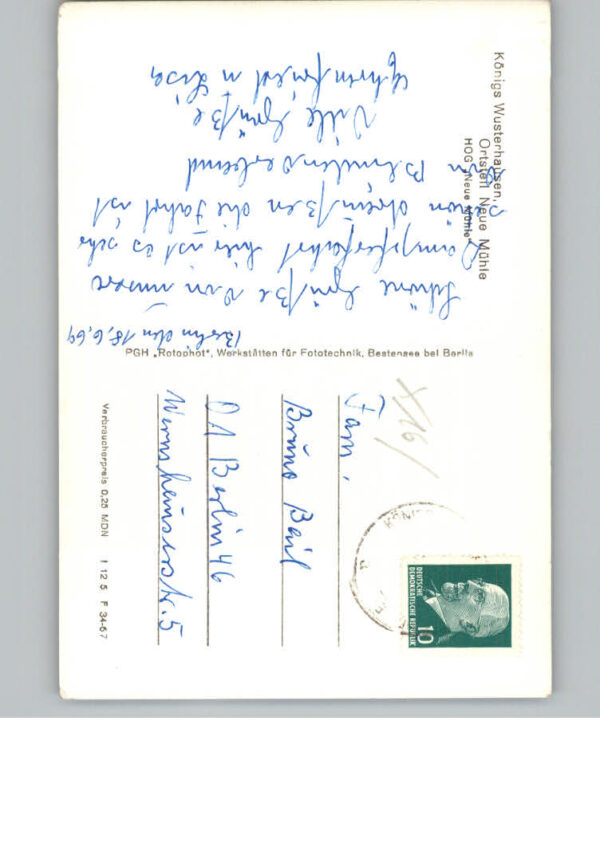 Königs Wusterhausen,
Ortsteil Neue Mühle
HOG „Neue Mühle"
Berlin den 18.6.69
Schöne Grüße von unsere
Dampferfahrt hier ist es sehr
schön draußen die Fahrt ist
Viele Grüße
PGH „Rotophot", Werkstätten für Fototechnik, Bestensee bei Berlin
Fam.
Bruno Beil
01 Berlin 46
5
Verbraucherpreis 0,25 MDN I 12 5 F 34-67
X16/
KÖNIG
DEUTSCHE
DEMOKRATISCHE REPUBLIK
10